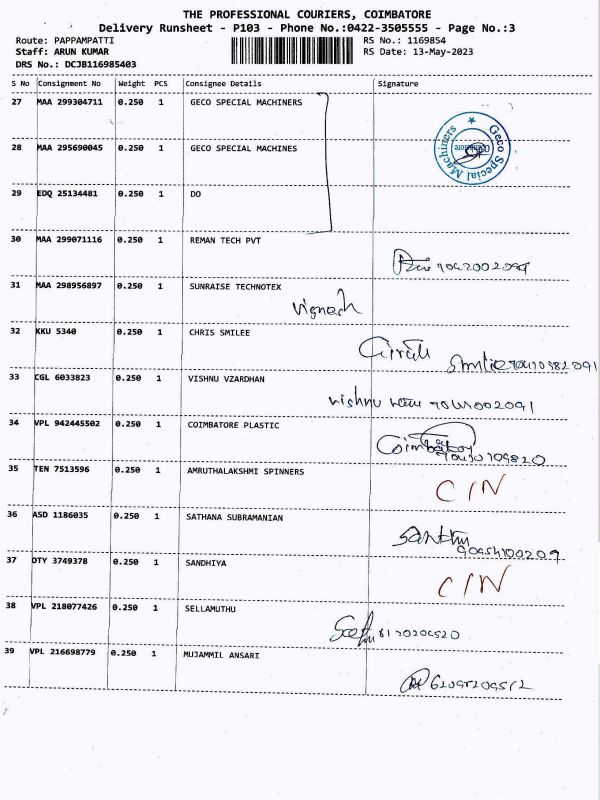 THE PROFESSIONAL COURIERS, COIMBATORE
Delivery Runsheet - P103 - Phone No.:0422-3505555 - Page No.:3
Route: PAPPAMPATTI RS No.: 1169854
Staff: ARUN KUMAR RS Date: 13-May-2023
DRS No.: DCJB116985403
S No Consignment No Weight PCS Consignee Details Signature
27 MAA 299304711 0.250 1 GECO SPECIAL MACHINERS
28 MAA 295690045 0.250 1 GECO SPECIAL MACHINES
Geco Special Machiners
29 EDQ 25134481 0.250 1 DO
30 MAA 299071116 0.250 1 REMAN TECH PVT
31 MAA 298956897 0.250 1 SUNRAISE TECHNOTEX
Vignesh
32 KKU 5340 0.250 1 CHRIS SMILEE
33 CGL 6033823 0.250 1 VISHNU VZARDHAN
Vishnu
34 VPL 942445502 0.250 1 COIMBATORE PLASTIC
35 TEN 7513596 0.250 1 AMRUTHALAKSHMI SPINNERS
C/N
36 ASD 1186035 0.250 1 SATHANA SUBRAMANIAN
37 OTY 3749378 0.250 1 SANDHIYA
C/N
38 VPL 218077426 0.250 1 SELLAMUTHU
39 VPL 216698779 0.250 1 MUJAMMIL ANSARI